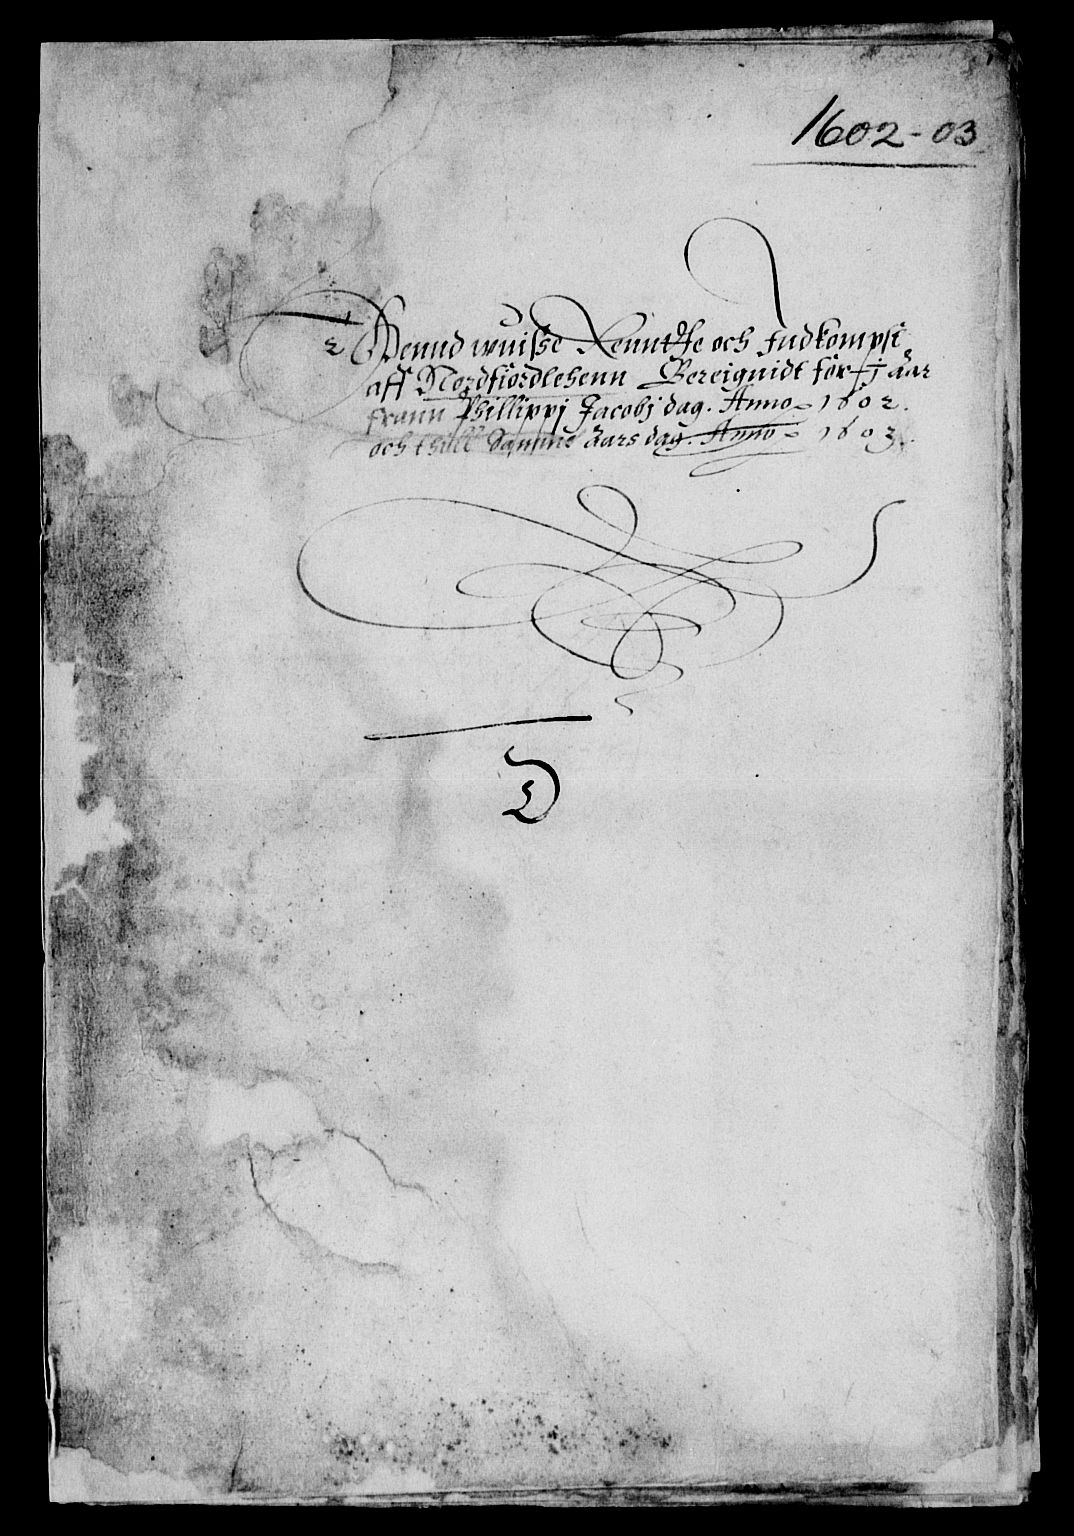 1602-03
Thend wuisse Renntthe och Indkompst
aff Nordfiordlehenn Bereignidt för j aar
frann Phillippj Jacobj dag. Anno 1602.
och thill Samme aars dag. Anno 1603.
D